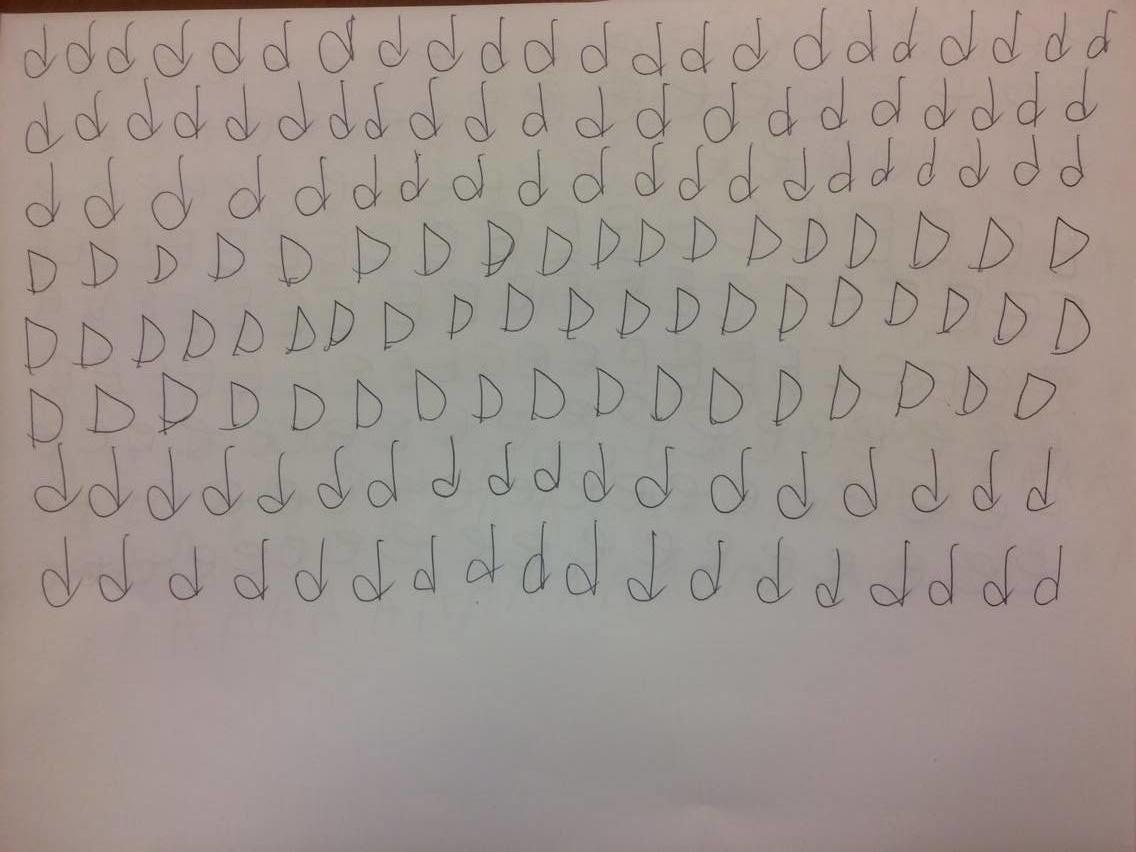 d d d d d d d d d d d d d d d d d d d d d d
d d d d d d d d d d d d d d d d d d d d d
d d d d d d d d d d d d d d d d d d d d
D D D D D D D D D D D D D D D D D D
D D D D D D D D D D D D D D D D D D D D
D D D D D D D D D D D D D D D D D
d d d d d d d d d d d d d d d d d d
d d d d d d d d d d d d d d d d d d